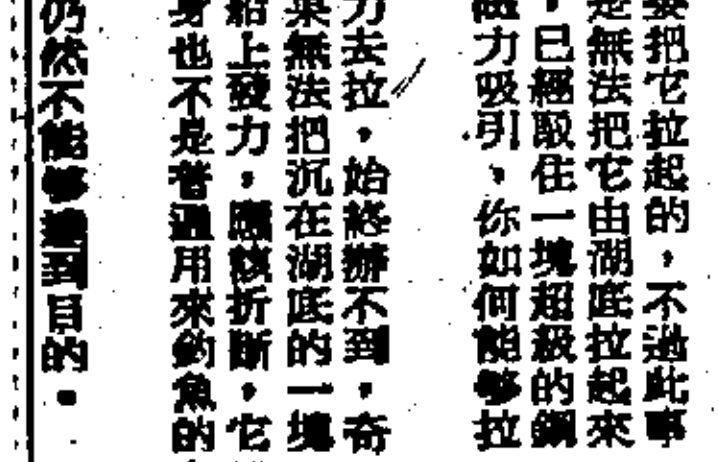 要把它拉起的，不過此事
是無法把它由湖底拉起來
，已經取住一塊超級的鋼
磁力吸引，你如何能够拉
力去拉，始終辦不到，奇
果無法把沉在湖底的一塊
船上發力，應該折斷，它
身也不是普通用來釣魚的
仍然不能够達到目的。